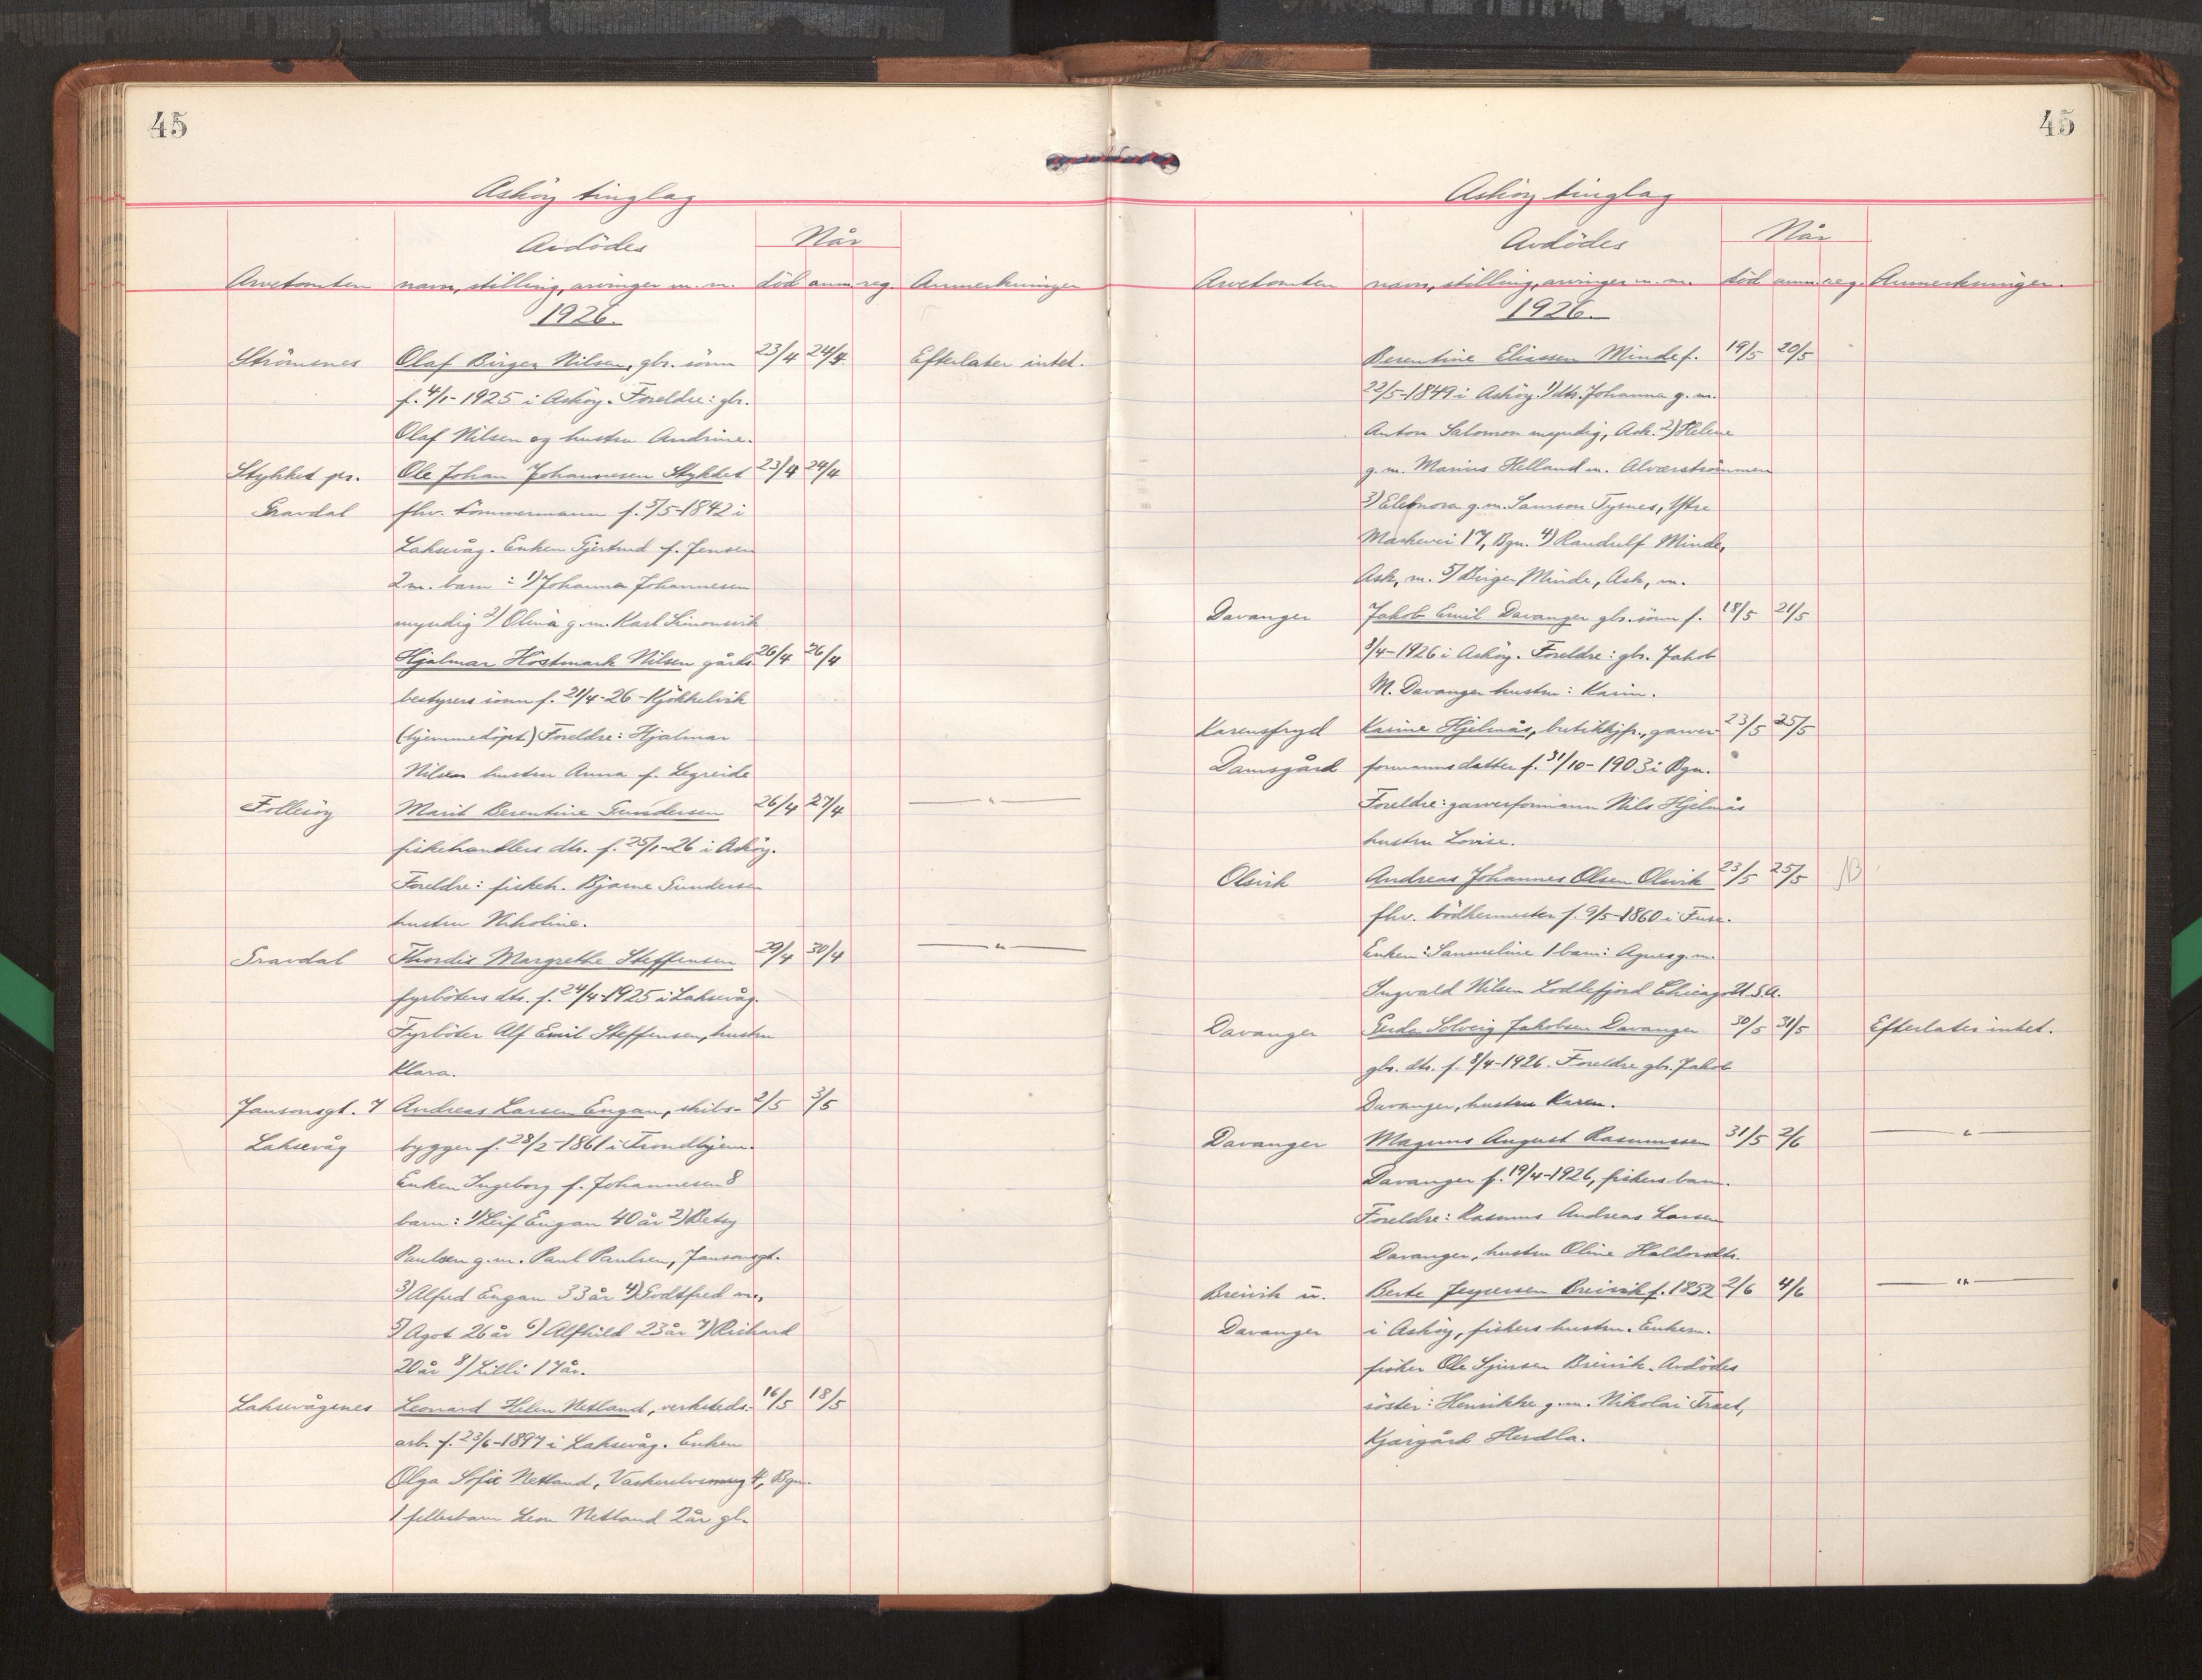 45
Askøy tinglag
Avdödes
Når
Arvetomten navn, stilling, arvinger m.m. död anm. reg. Anmerkninger
1926.
Strömsnes Olaf Birger Nilsen, gbr. sönn 23/4 24/4 Efterlater intet.
f. 4/1-1925 i Askøy. Foreldre: gbr.
Olaf Nilsen og hustru Andrine.
Stykket pr. Ole Johan Johannesen Stykket 23/4 24/4
Gravdal fhv. tömmermann f. 5/5-1842 i
Laksevåg. Enken Gjertrud f. Jensen
2 m. barn: 1) Johanna Johannesen
myndig 2) Olina g.m. Karl Simonsvik
Hjalmar Hostmark Nilsen gårds 26/4 26/4
bestyrers sönn f. 21/4-26 - Kjökkelvik
(hjemmedöpt) Foreldre: Hjalmar
Nilsen hustru Anna f. Legreide
Follesøy Marit Berentine Gundersen 26/4 27/4 — " —
fiskehandlers dtr. f. 25/1-26 i Askøy.
Foreldre: fiskeh. Bjarne Gundersen
hustru Nikoline.
Gravdal Thordis Margrethe Steffensen 29/4 30/4 — " —
fyrböters dtr. f. 24/4-1925 i Laksevåg.
Fyrböter Alf Emil Steffensen, hustru
Klara.
Jansonsgt. 7 Andreas Larsen Engan, skibs- 2/5 3/5
Laksevåg bygger f. 28/2-1861 i Trondhjem.
Enken Ingeborg f. Johannesen 8
barn: 1) Leif Engan 40 år 2) Betsy
Paulsen g.m. Paul Paulsen, Jansonsgt.
3) Alfred Engan 33 år 4) Godtfred m.,
5) Agot 26 år 6) Alfhild 23 år 7) Richard
20 år 8) Lilli 17 år.
Laksevågsnes Leonard Helen Netland, verksteds- 16/5 18/5
arb. f. 23/6-1897 i Laksevåg. Enken
Olga Sofie Netland, 4, Bgn.
1 fellesbarn Leon Netland 2 år gl.
45
Askøy tinglag
Avdödes
Når
Arvetomten navn, stilling, arvinger m.m. död anm. reg. Anmerkninger.
1926.
Berentine Eliassen Minde f. 19/5 20/5
22/5-1849 i Askøy. 1) dtr. Johanna g.m.
Anton Salomon myndig, Ask. 2) Helene
g.m. Marius Helland m. Alverströmmen
3) Eleonora g.m. Samson Tysnes, Ytre
Markevei 17, Bgn. 4) Randulf Minde,
Ask, m. 5) Birger Minde, Ask, m.
Davanger Jakob Emil Davanger gbr. sönn f. 18/5 21/5
8/4-1926 i Askøy. Foreldre: gbr. Jakob
M. Davanger hustru: Karin.
Karensfryd Karine Hjelmås, butikkjfr., garver- 23/5 25/5
Damsgård formanns datter f. 31/10-1903 i Bgn.
Foreldre: garverformann Nils Hjelmås
hustru Lovise.
Olsvik Andreas Johannes Olsen Olsvik 23/5 25/5
fhv. bödkermester f. 9/5-1860 i Fuse.
Enken: Sanneline 1 barn: Agnes g.m.
Ingvald Nilsen Loddefjord Chicago U.S.A.
Davanger Gerda Solveig Jakobsen Davanger 30/5 31/5 Efterlater intet.
gbr. dtr. f. 8/4-1926. Foreldre gbr. Jakob
Davanger, hustru Karen.
Davanger Magnus August Rasmussen 31/5 2/6 — " —
Davanger f. 19/4-1926, fiskers barn.
Foreldre: Rasmus Andreas Larsen
Davanger, hustru Oline Halldorsdtr.
Breivik u. Berte Jespersen Breivik f. 1852 2/6 4/6 — " —
Davanger i Askøy, fiskers hustru. Enkem.
fisker Ole Breivik. Avdödes
söster: Henrikke g.m. Nikolai Træet,
Kjærgård Herdla.